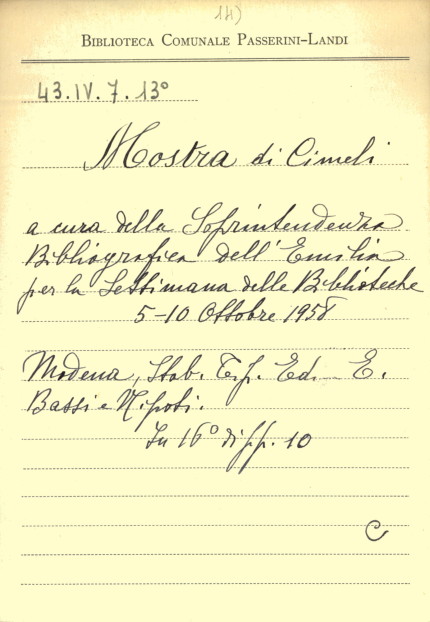 14)
BIBLIOTECA COMUNALE PASSERINI-LANDI
43.IV.7.13°
Mostra di Cimeli
a cura della Soprintendenza
Bibliografica dell'Emilia
per la Settimana delle Biblioteche
5-10 Ottobre 1958
Modena, Stab. Tip. Ed. E.
Bassi e Nipoti.
In 16° di pp. 10
C